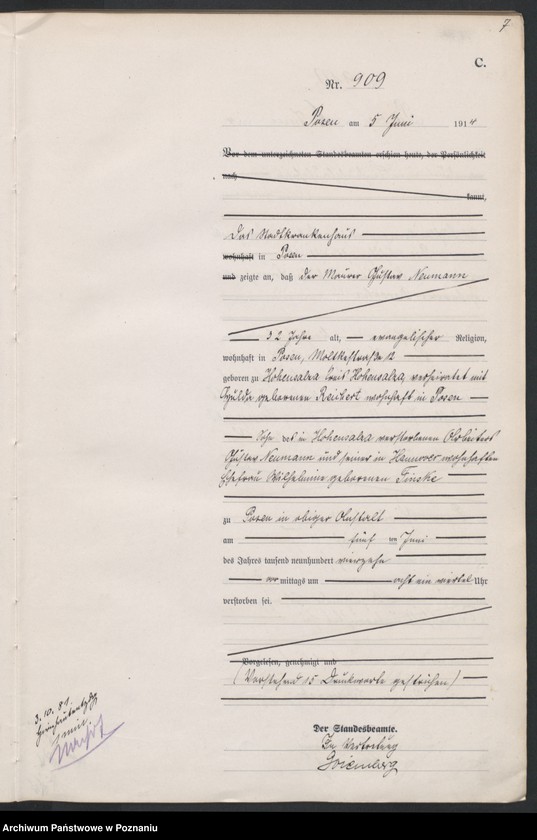 7
C.
Nr. 909
Posen am 5 Juni 1914
Vor dem unterzeichneten Standesbeamten erschien heute, der Persönlichkeit
nach
kannt,
Das Stadtkrankenhaus
wohnhaft in Posen
und zeigte an, daß der Maurer Gustav Neumann
32 Jahre alt, evangelischer Religion,
wohnhaft in Posen, Moltkestraße 12
geboren zu Hohensalza Kreis Hohensalza, verheiratet mit
geborenen Reichert wohnhaft in Posen
Sohn des in Hohensalza verstorbenen Arbeiters
Gustav Neumann und seiner in Hannover wohnhaften
Ehefrau Wilhelmine geborenen Finske
zu Posen in obiger Anstalt
am fünf ten Juni
des Jahres tausend neunhundert vierzehn
vor mittags um acht ein viertel Uhr
verstorben sei.
Vorgelesen, genehmigt und
(Vorstehend 15 Druckworte gestrichen)
Der Standesbeamte.
In Vertretung
3.10.81.
Archiwum Państwowe w Poznaniu